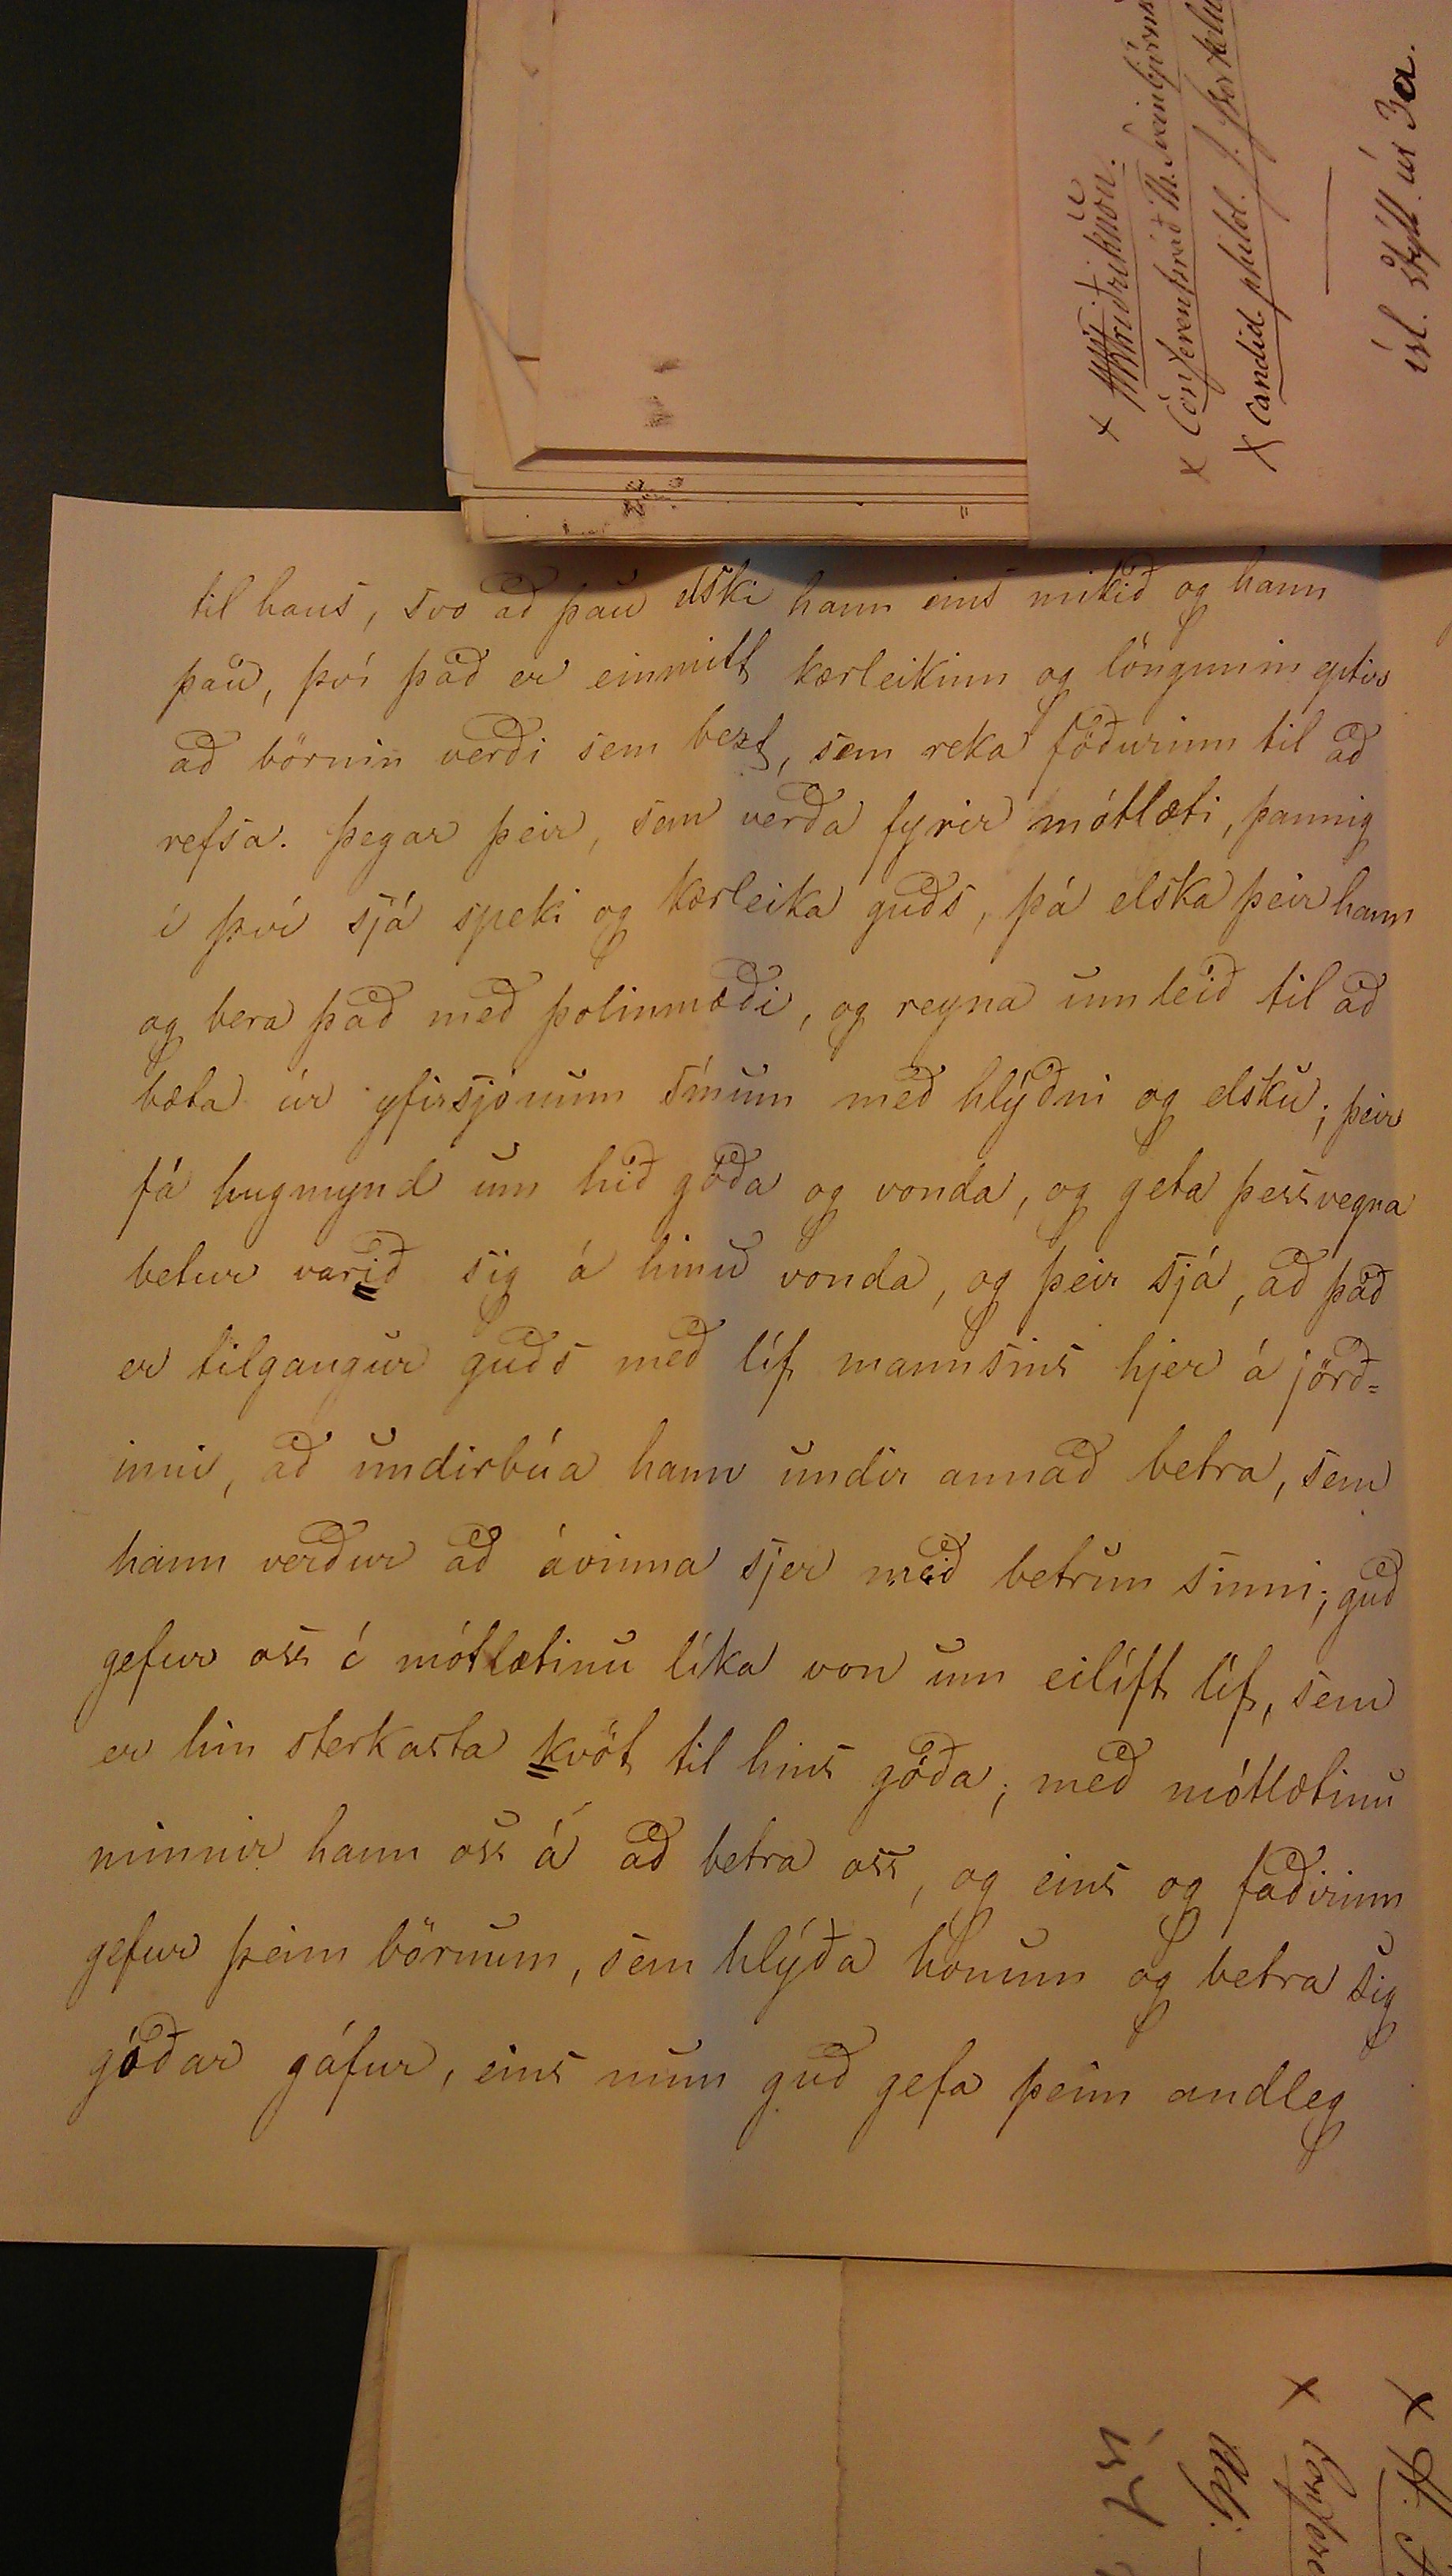 H. Kr. Friðriksson.
x Conferensráð Th. Sveinbjörns
x Candid. philol. J. Þorkels
ísl. stýll úr 3a.
til hans, svo að þau elski hann eins mikið og hann
þau, því það er einmitt kærleikinn og löngunin eptir
að börnin verði sem bezt, sem reka föðurinn til að
refsa. Þegar þeir, sem verða fyrir mótlæti, þannig
í því sjá speki og kærleika guðs, þá elska þeir hann
og bera það með þolinmæði, og reyna um leið til að
bæta úr yfirsjónum sínum með hlýðni og elsku; þeir
fá hugmynd um hið góða og vonda, og geta þessvegna
betur varið sig á hinu vonda, og þeir sjá, að það
er tilgangur guðs með líf mannsins hjer á jörð=
inni, að undirbúa hann undir annað betra, sem
hann verður að ávinna sjer með betrun sinni; guð
gefur oss í mótlætinu líka von um eilíft líf, sem
er hin sterkasta kvöt til hins góða; með mótlætinu
minnir hann oss á að betra oss, og eins og faðirinn
gefur þeim börnum, sem hlýða honum og betra sig
góðar gáfur, eins mun guð gefa þeim andleg
x H.
x Confere
Adj.
ís